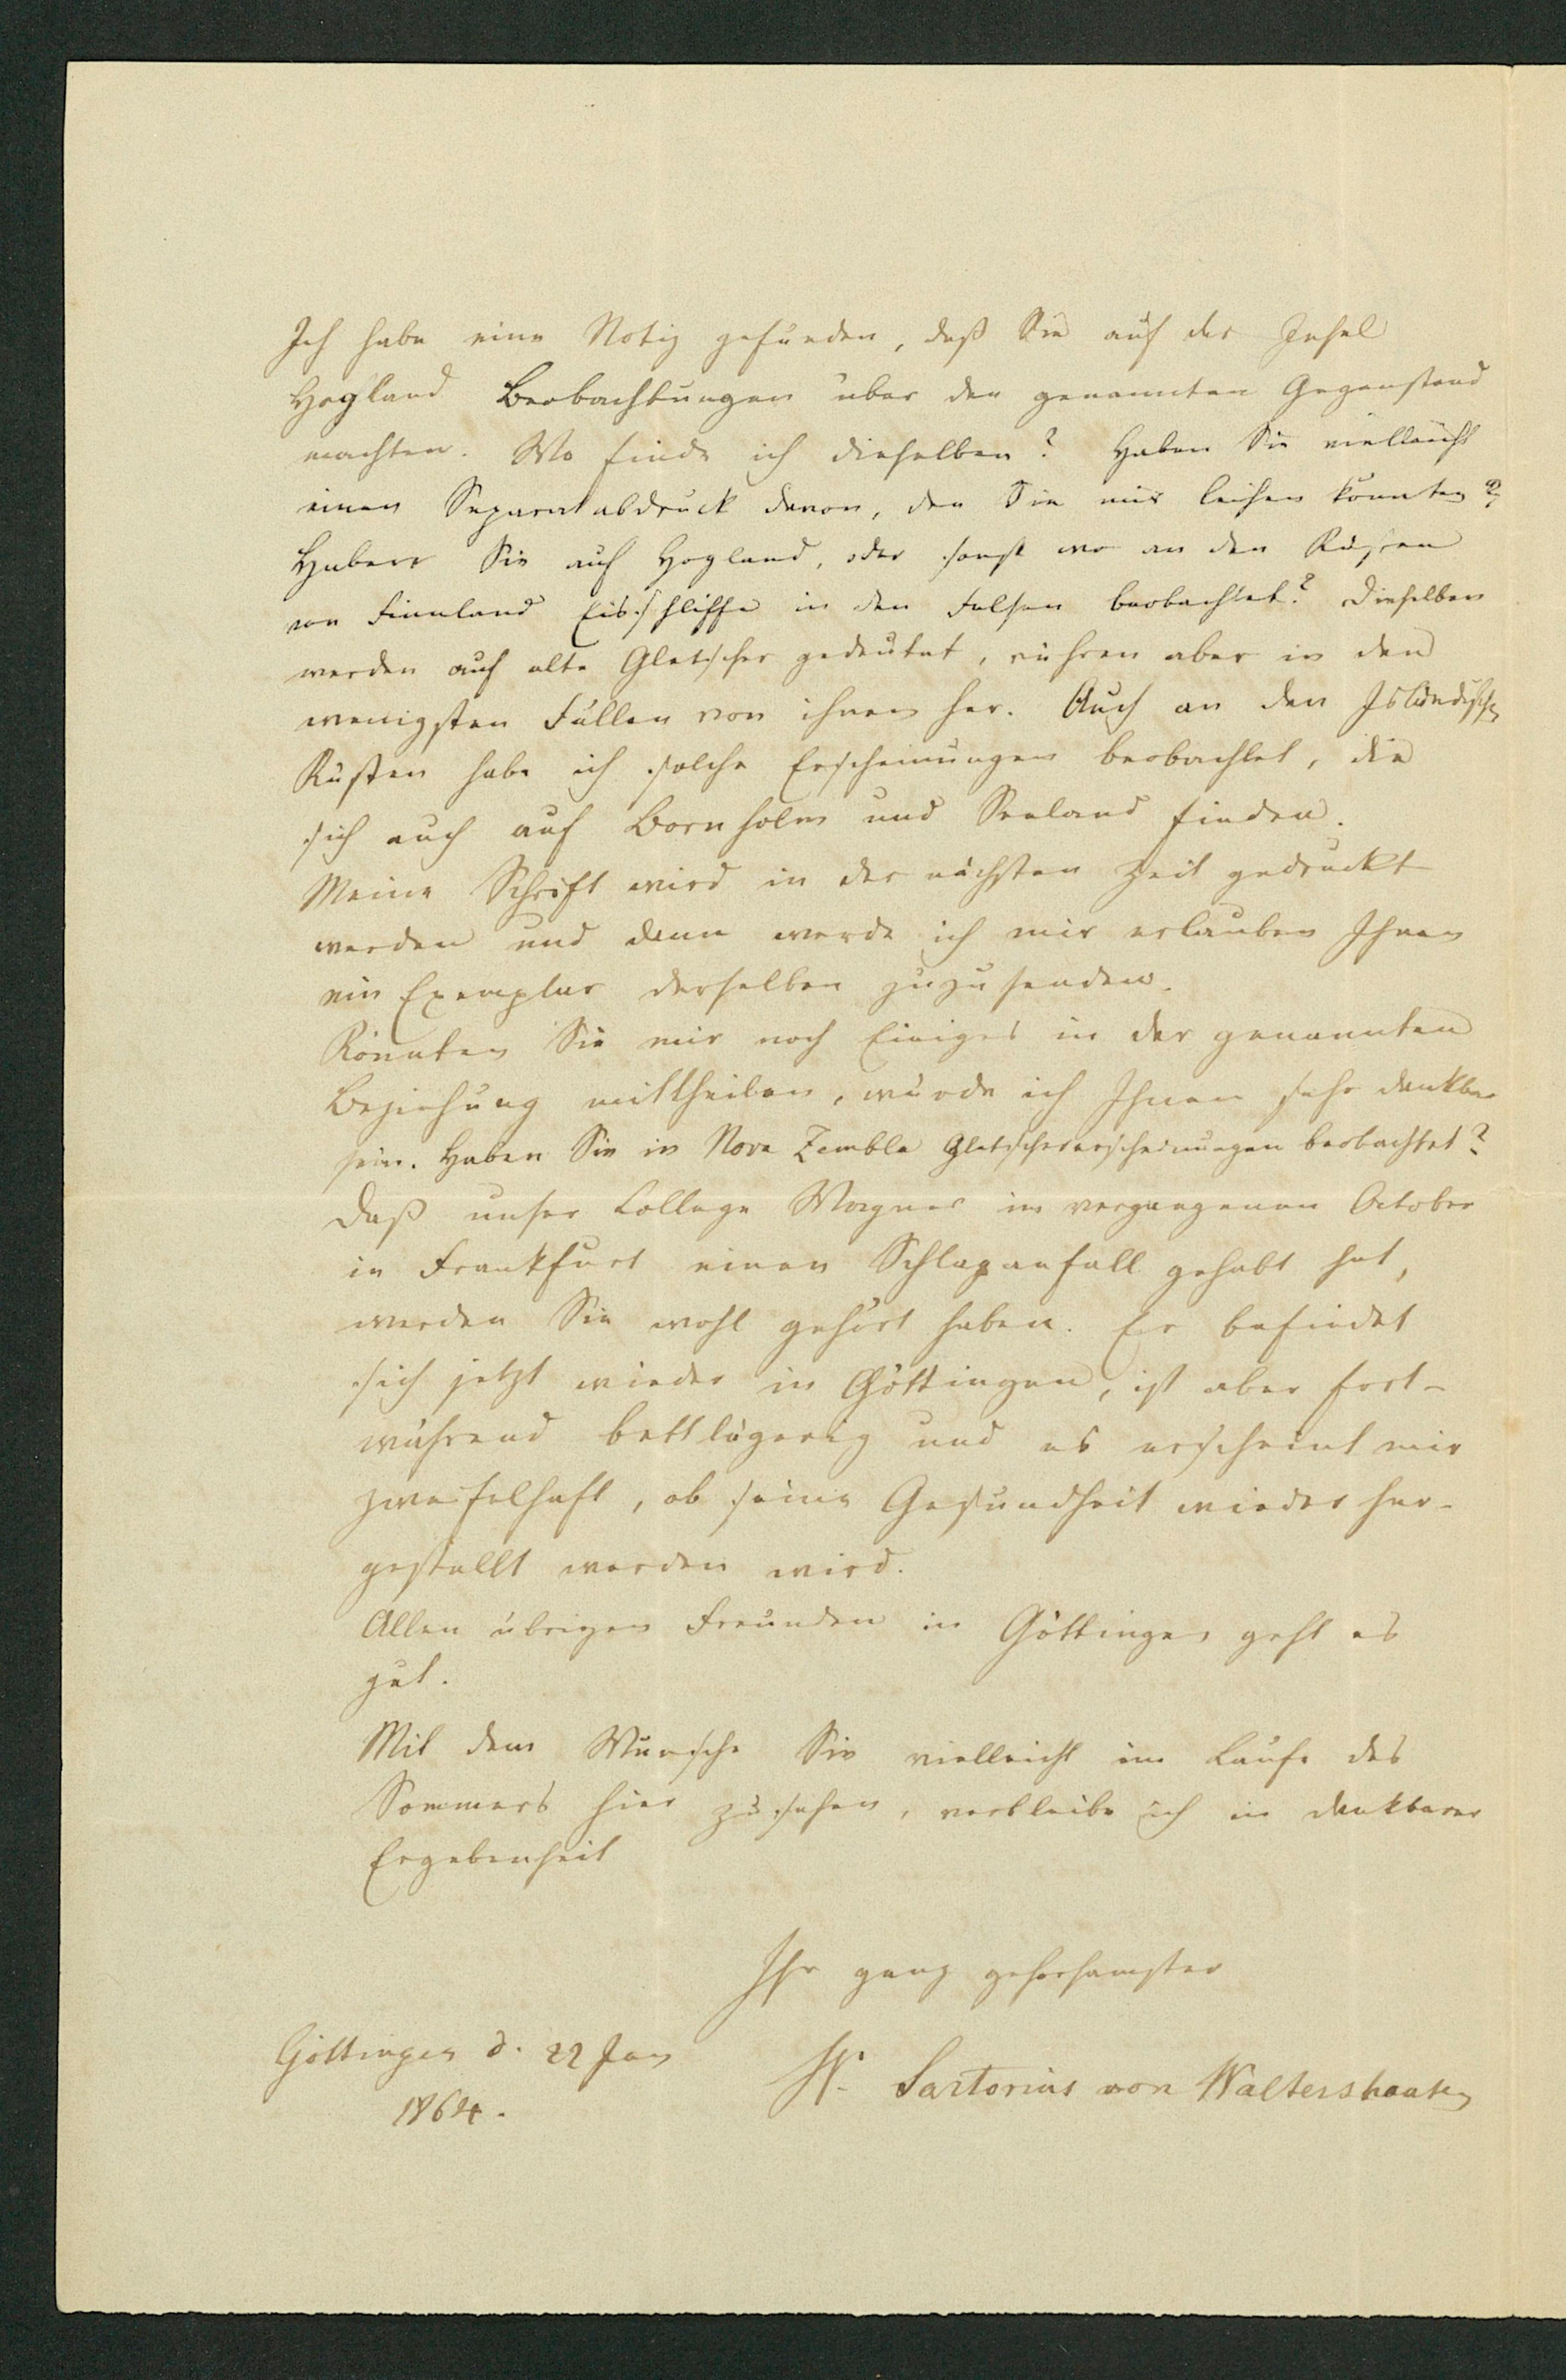 Ich habe eine Notiz gefunden, daß Sie auf der Insel
Hogland Beobachtungen über den genannten Gegenstand
machten. Wo finde ich dieselben? Haben Sie vielleicht
einen Separatabdruck davon, den Sie mir leihen könnten?
Haben Sie auf Hogland, oder sonst wo an den Küsten
von Finnland Eisschliffe in den Felsen beobachtet? Dieselben
werden auf alte Gletscher gedeutet, rühren aber in den
wenigsten Fällen von ihnen her. Auch an den Isländischen
Küsten habe ich solche Erscheinungen beobachtet, die
sich auch auf Bornholm und Seeland finden.
Meine Schrift wird in der nächsten Zeit gedruckt
werden und dann werde ich mir erlauben Ihnen
ein Exemplar derselben zuzusenden.
Könnten Sie mir noch Einiges in der genannten
Beziehung mittheilen, würde ich Ihnen sehr dankbar
sein. Haben Sie in Nova Zembla Gletschererscheinungen beobachtet?
Daß unser College Wagner im vergangenen October
in Frankfurt einen Schlaganfall gehabt hat,
werden Sie wohl gehört haben. Er befindet
sich jetzt wieder in Göttingen, ist aber fort-
während bettlägerig und es erscheint mir
zweifelhaft, ob seine Gesundheit wieder her-
gestellt werden wird.
Allen übrigen Freunden in Göttingen geht es
gut.
Mit dem Wunsche Sie vielleicht im Laufe des
Sommers hier zu sehen, verbleibe ich in dankbarer
Ergebenheit
Ihr ganz gehorsamster
Göttingen d. 22 Jan
1864.
W. Sartorius von Waltershausen